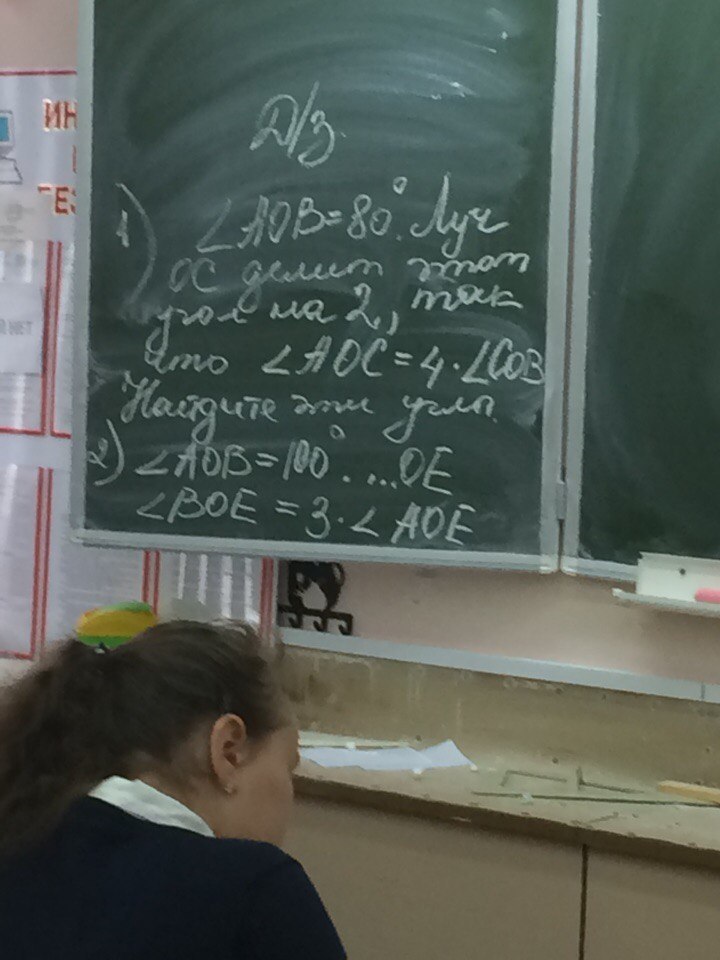 Д/з
1) ∠AOB=80°. Луч
OC делит этот
угол на 2, так
что ∠AOC=4·∠COB
Найдите эти углы.
2) ∠AOB=100°. ...OE
∠BOE=3·∠AOE
ИН
ТЕЗ
НЕТ